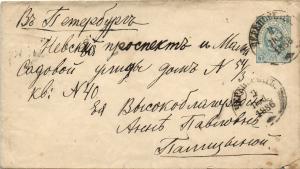 Въ Петербургъ
Невскiй проспектъ и Малой
Садовой улицы домъ № 54/3
кв: № 40
Ея Высокоблагородiю
Аннѣ Павловнѣ